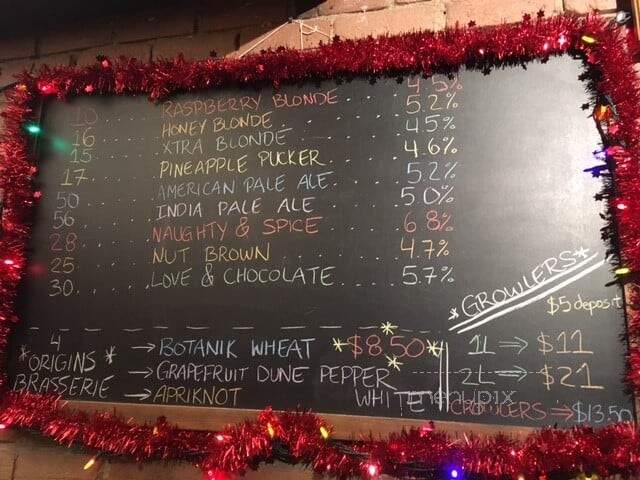 10 . . RASPBERRY BLONDE . . 4.5%
16 . . HONEY BLONDE . . 5.2%
15 . . XTRA BLONDE . . 4.5%
17 . . PINEAPPLE PUCKER . . 4.6%
50 . . AMERICAN PALE ALE . . 5.2%
56 . . INDIA PALE ALE . . 5.0%
28 . . NAUGHTY & SPICE . . 6.8%
25 . . NUT BROWN . . 4.7%
30 . . LOVE & CHOCOLATE . . 5.7%
*GROWLERS*
$5 deposit
4 *ORIGINS* BRASSERIE
→ BOTANIK WHEAT *$8.50*
→ GRAPEFRUIT DUNE PEPPER WHITE
→ APRIKNOT
1L ⇒ $11
2L ⇒ $21
CROWLERS ⇒ $13.50
menupix